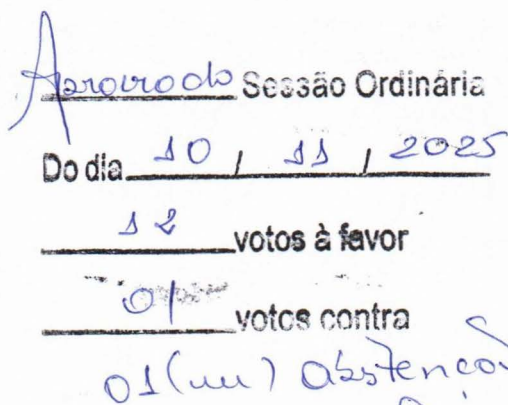 Aprovado Sessão Ordinária
Do dia 10 / 11 / 2025
12 votos à favor
01 votos contra
01 (um) abstenção